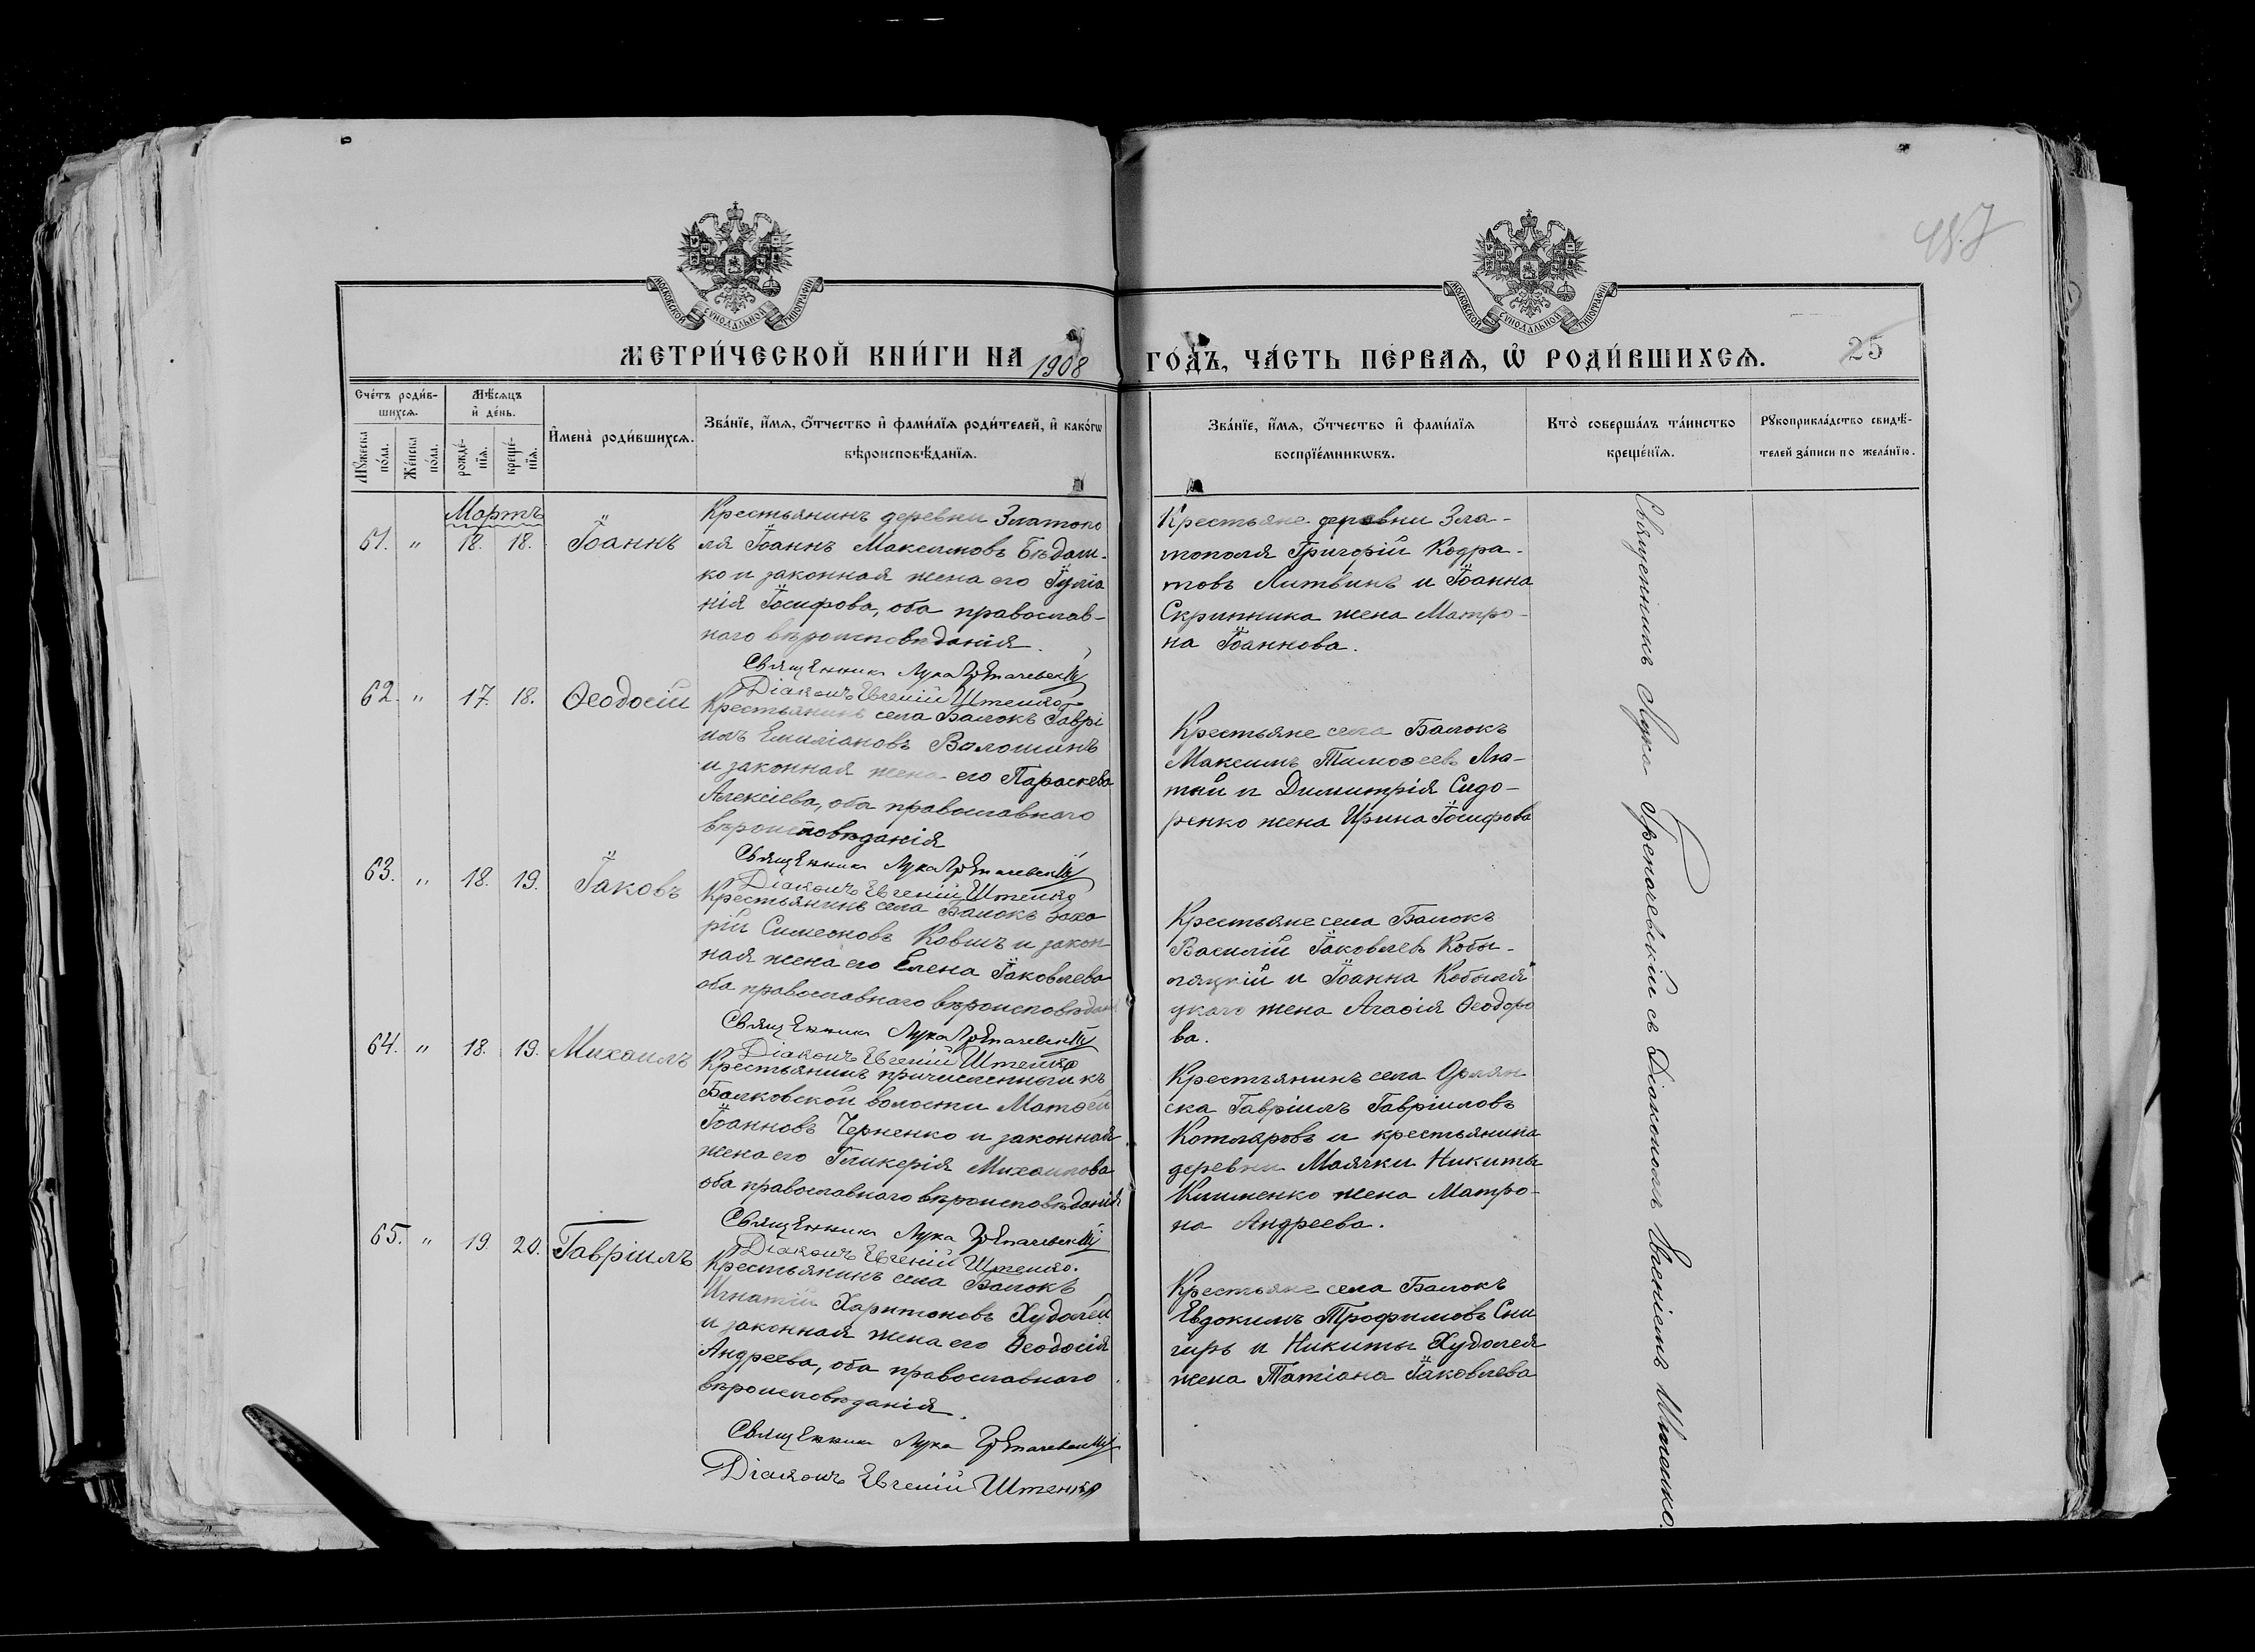 487
МОСКОВСКОЙ СѴНОДАЛЬНОЙ ТИПОГРАФІИ
МОСКОВСКОЙ СѴНОДАЛЬНОЙ ТИПОГРАФІИ
МЕТРИ́ЧЕСКОЙ КНИ́ГИ НА 1908 ГО́ДЪ, ЧА́СТЬ ПЕ́РВАѦ, Ѡ҆ РОДИ́ВШИХСѦ. 25
Сче́тъ роди́в-
шихсѧ.
Мꙋ́жеска по́ла.
Же́нска по́ла.
Мѣ́сѧцъ
и҆ де́нь.
рожде́-
нїѧ.
креще́-
нїѧ.
И҆мена̀ роди́вшихсѧ.
Зва́нїе, и҆́мѧ, ѻ҆́тчество и҆ фами́лїѧ роди́телей, и҆ како́гѡ
вѣроисповѣ́данїѧ.
Зва́нїе, и҆́мѧ, ѻ҆́тчество и҆ фами́лїѧ
воспрїе́мникѡвъ.
Кто̀ соверша́лъ та́инство
креще́нїѧ.
Рꙋкоприкла́дство свидѣ́-
телей за́писи по жела́нїю.
Мартъ
61. " 18. 18. Іоаннъ
Крестьянинъ деревни Златопо
ля Іоаннъ Максимовъ Бѣдаш-
ко и законная жена его Іуліа
нія Іосифова, оба православ-
наго вѣроисповѣданія.
Священникъ Лука
Діаконъ Евгеній Штепко
Крестьяне деревни Зла-
тополя Григорій Кодра-
товъ Литвинъ и Іоанна
Скрипника жена Матро-
на Іоаннова.
62. " 17. 18. Ѳеодосій
Крестьянинъ села Балокъ Гаврі
илъ Емиліановъ Валошинъ
и законная жена его Параскева
Алексіева, оба православнаго
вѣроисповѣданія
Священникъ Лука
Діаконъ Евгеній Штепко
Крестьяне села Балокъ
Максимъ Тимоѳеевъ Ла-
тый и Димитрія Сидо-
ренко жена Ирина Іосифова
63. " 18. 19. Іаковъ
Крестьянинъ села Балокъ Заха
рій Симеоновъ Ковшъ и закон
ная жена его Елена Іаковлева
оба православнаго вѣроисповѣдан
Священникъ Лука
Діаконъ Евгеній Штепко
Крестьяне села Балокъ
Василій Іаковлевъ Кобы-
ляцкій и Іоанна Кобыля
цкаго жена Агаѳія Ѳеодоро
ва.
64. " 18. 19. Михаилъ
Крестьянинъ причисленный къ
Балковской волости Матѳей
Іоанновъ Черненко и законная
жена его Гликерія Михаилова
оба православнаго вѣроисповѣданія
Священникъ Лука
Діаконъ Евгеній Штепко.
Крестьянинъ села Орлян
ска Гавріилъ Гавріиловъ
Котляровъ и крестьянина
деревни Маячки Никиты
Клименко жена Матро-
на Андреева.
65. " 19. 20. Гавріилъ
Крестьянинъ села Балокъ
Игнатій Харитоновъ Худолей
и законная жена его Ѳеодосія
Андреева, оба православнаго
вѣроисповѣданія.
Священникъ Лука
Діаконъ Евгеній Штепко
Крестьяне села Балокъ
Евдокимъ Трофимовъ Сни
гирь и Никиты Худолея
жена Татіана Іаковлева
Священникъ Лука съ Діакономъ Евгеніемъ Штепко.